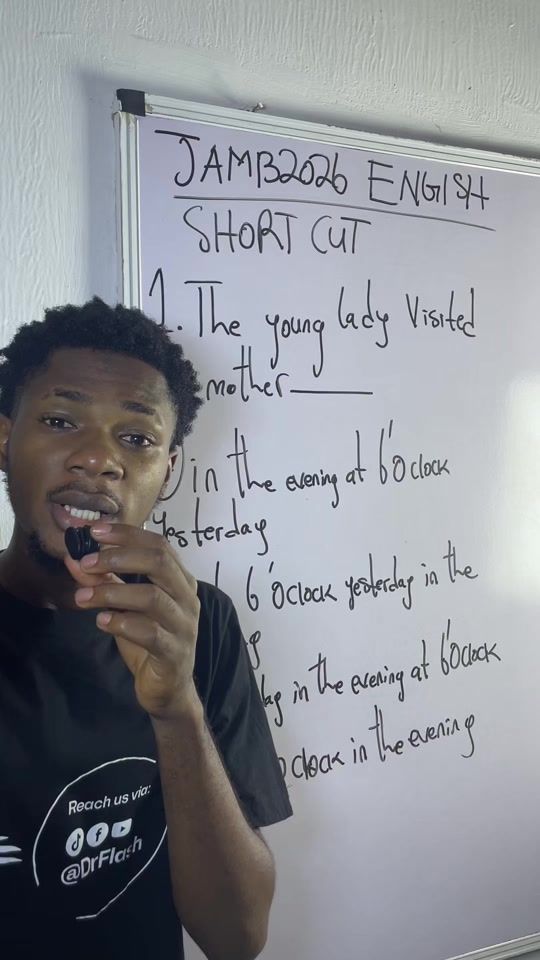 JAMB2026 ENGISH
SHORT CUT
1. The young lady Visited
mother
in the evening at 6'Oclock
Yesterday
6'Oclock yesterday in the
in the evening at 6'Oclock
clock in the evening
Reach us via:
@DrFlash